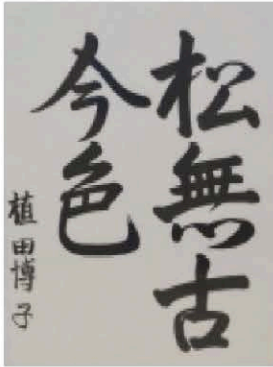 松無古
今色
植田博子